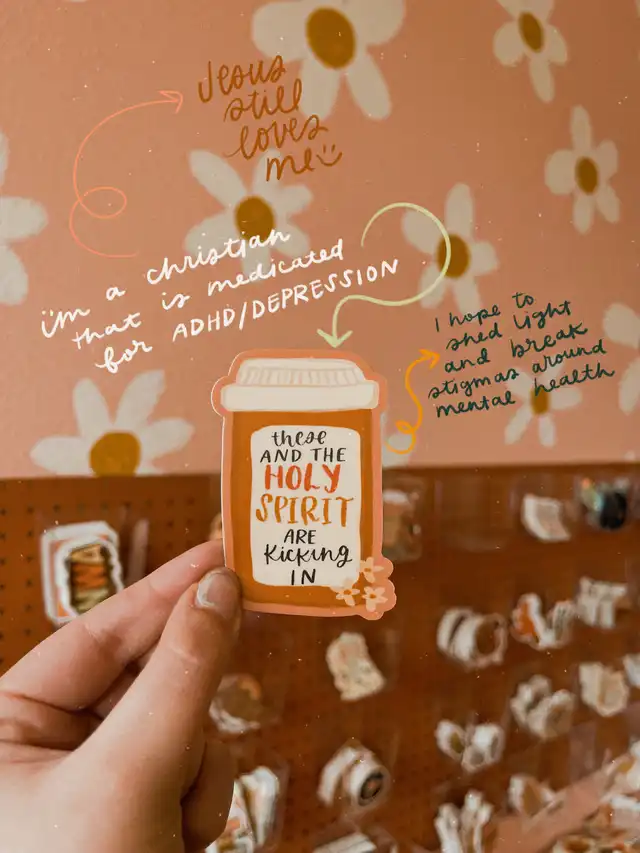 Jesus
still
loves
me
i'm a christian
that is medicated
for ADHD/DEPRESSION
I hope to
shed light
and break
stigmas around
mental health
these
AND THE
HOLY
SPIRIT
ARE
Kicking
IN